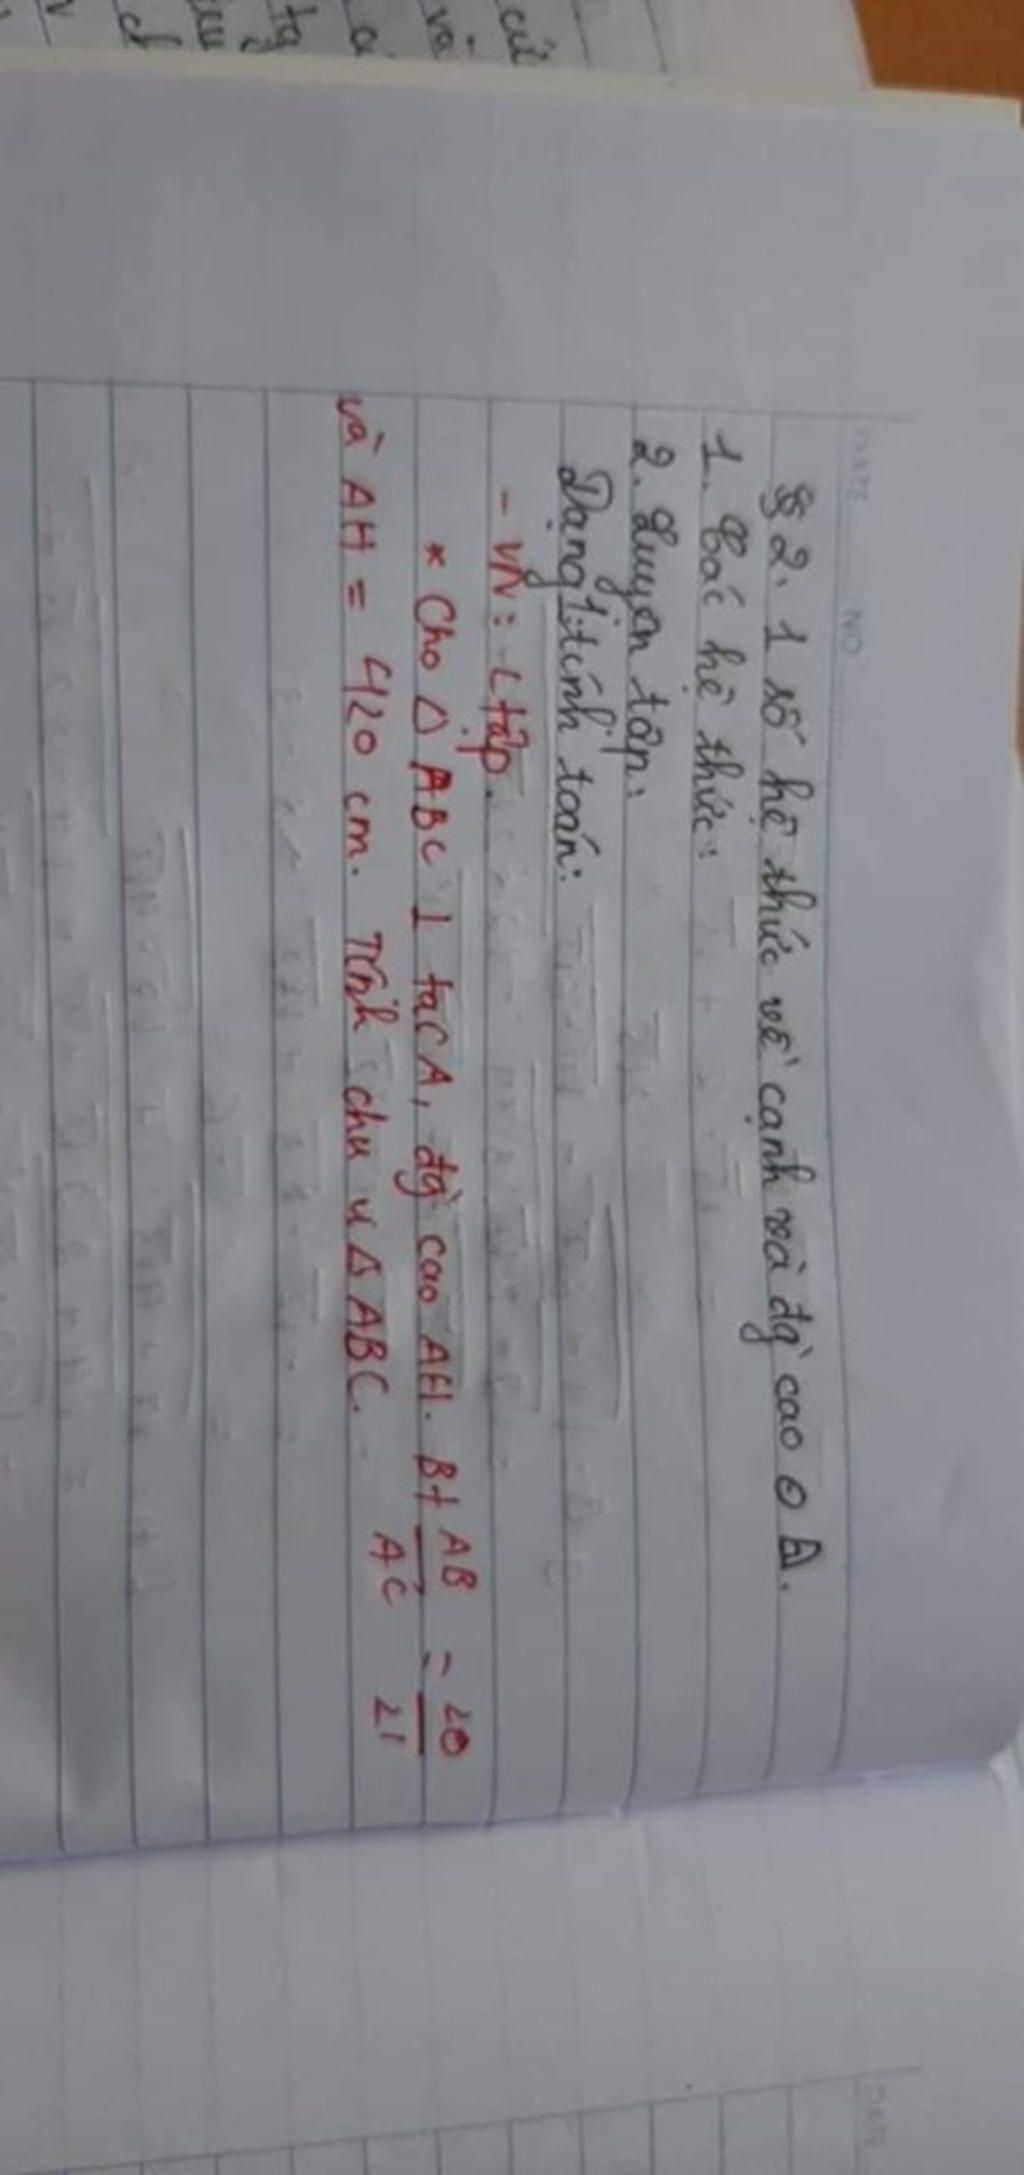 DATE NO
§ 2. 1 số hệ thức về cạnh và đg` cao ⊿.
1. Các hệ thức:
2. Luyện tập:
Dạng 1: tính toán:
- VN: L tập.
* Cho Δ ABC ⊥ tại A, đg` cao AH. Bt AB/AC = 20/21
và AH = 420 cm. Tính chu vi Δ ABC.
DATE